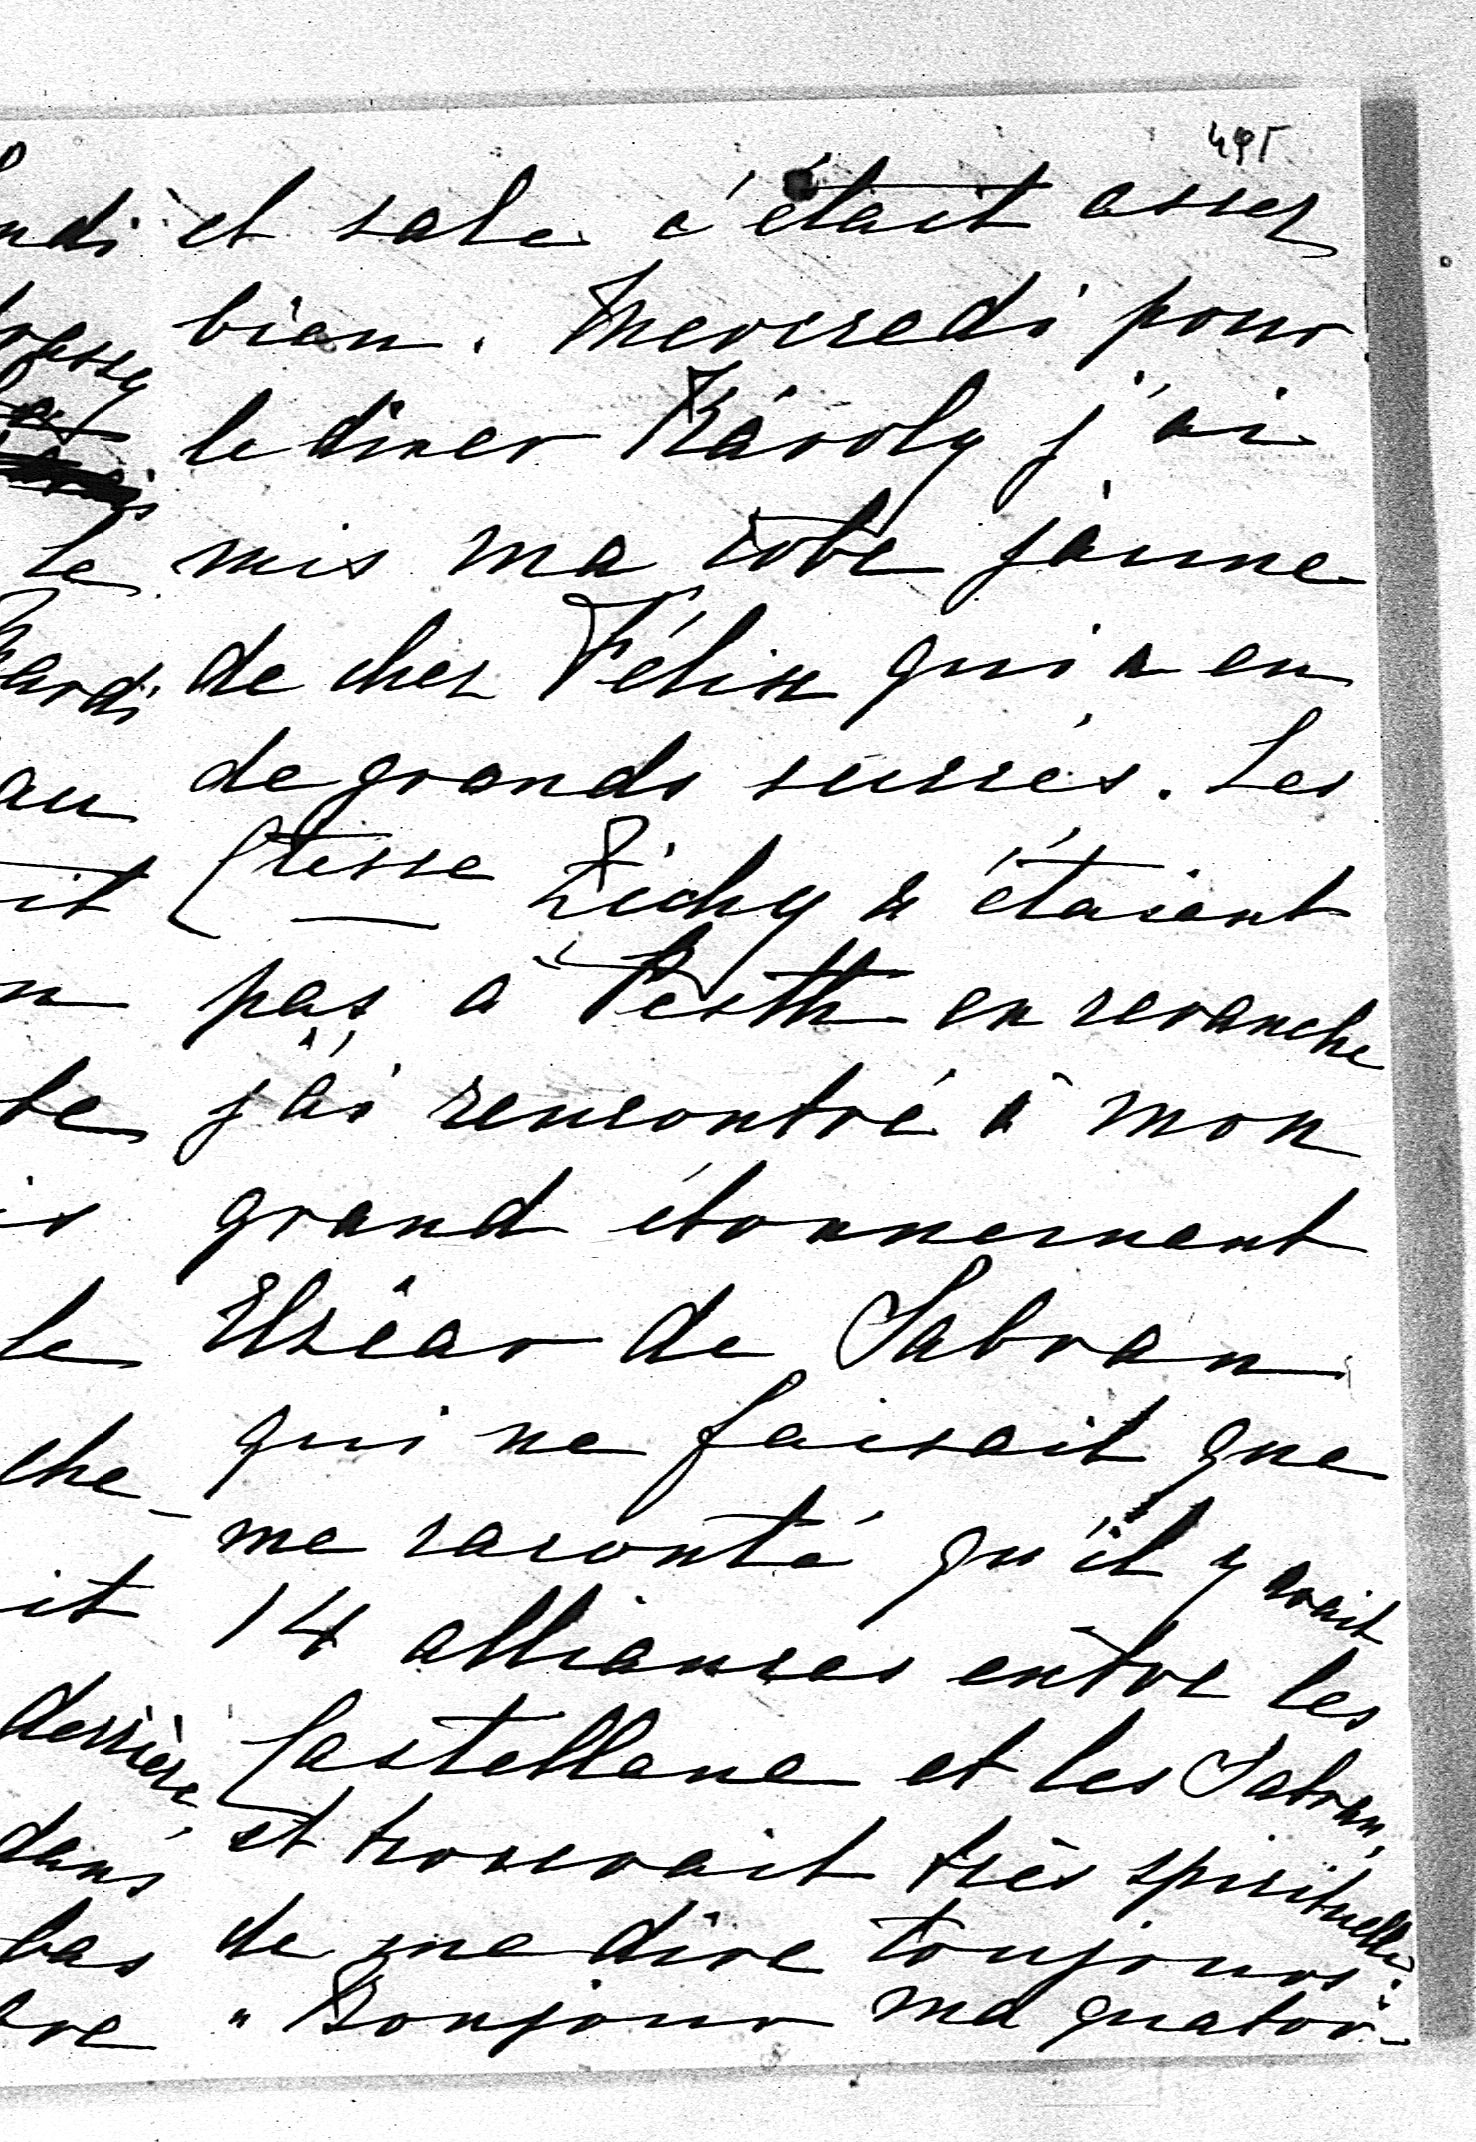 495
et sale c'était assez
bien. Mercredi pour
le diner Károly j'ai
mis ma robe jaune
de chez Félix qui a eu
de grands succés. Les
Ctesse Zichy n'étaient
pas à Pesth en revanche
j'ai rencontré à mon
grand étonnement
Elzéar de Sabran
qui ne faisait que
me raconté qu'il y avait
14 alliances entre les
Castellane et les Sabran,
et trouvait très spirituelle
de me dire toujours:
"Bonjour ma quator-
le
au
le
derrière
dans
bas